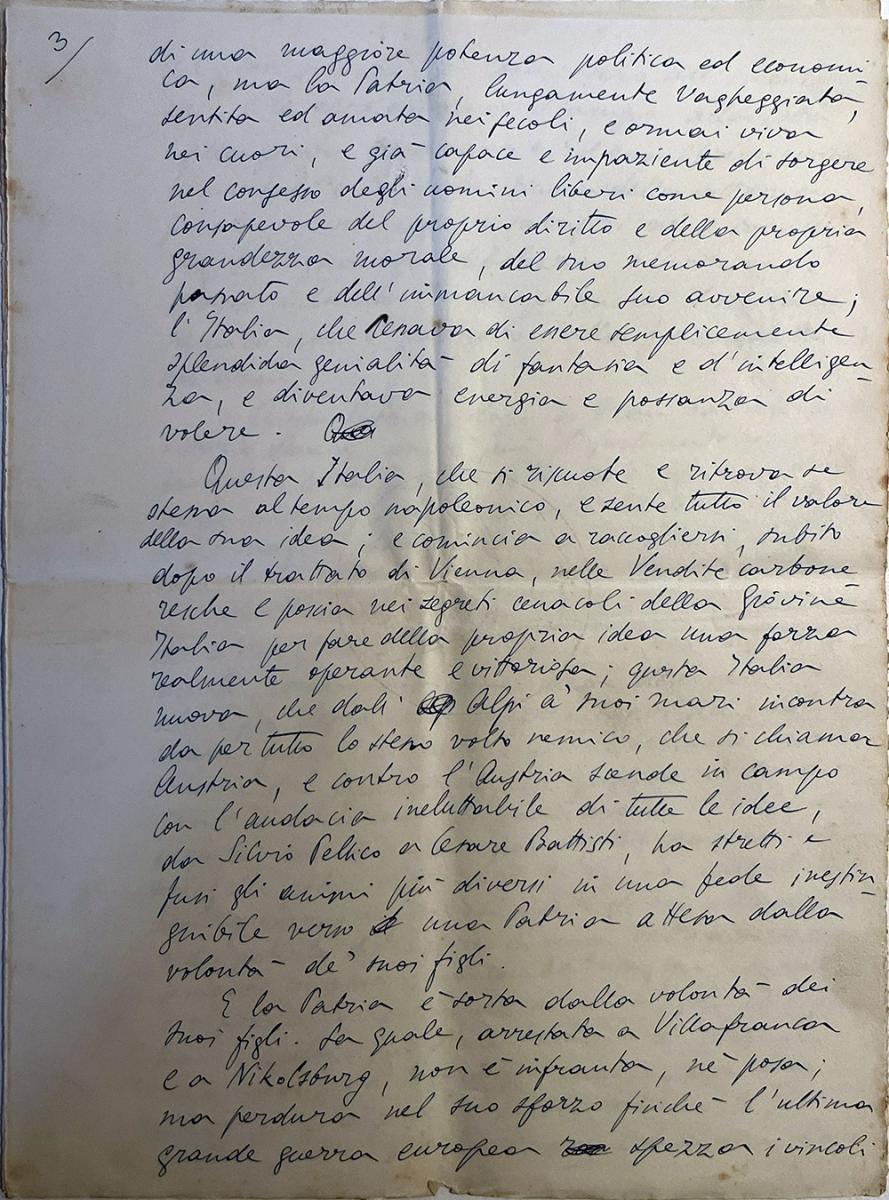 3/
di una maggiore potenza politica ed economi
ca, ma la Patria, lungamente vagheggiata,
sentita ed amata nei secoli, e ormai viva
nei cuori, e già capace e impaziente di sorgere
nel consesso degli uomini liberi come persona,
consapevole del proprio diritto e della propria
grandezza morale, del suo memorando
passato e dell'immancabile suo avvenire;
l'Italia, che cessava di essere semplicemente
splendida genialità di fantasia e d'intelligen-
za, e diventava energia e possanza di
volere.
Questa Italia, che si riscuote e ritrova se
stessa al tempo napoleonico, e sente tutto il valore
della sua idea; e comincia a raccogliersi, subito
dopo il trattato di Vienna, nelle Vendite carbone
resche e poscia nei segreti cenacoli della Giovine
Italia per fare della propria idea una forza
realmente operante e vittoriosa; questa Italia
nuova, che dall' Alpi a' suoi mari incontra
da per tutto lo stesso volto nemico, che si chiama
Austria, e contro l'Austria scende in campo
con l'audacia ineluttabile di tutte le idee,
da Silvio Pellico a Cesare Battisti, ha stretti e
fusi gli animi più diversi in una fede inestin-
guibile verso una Patria attesa dalla
volontà de' suoi figli.
E la Patria è sorta dalla volontà dei
suoi figli. La quale, arrestata a Villafranca
e a Nikolsburg, non è infranta, nè posa;
ma perdura nel suo sforzo finchè l'ultima
grande guerra europea spezza i vincoli